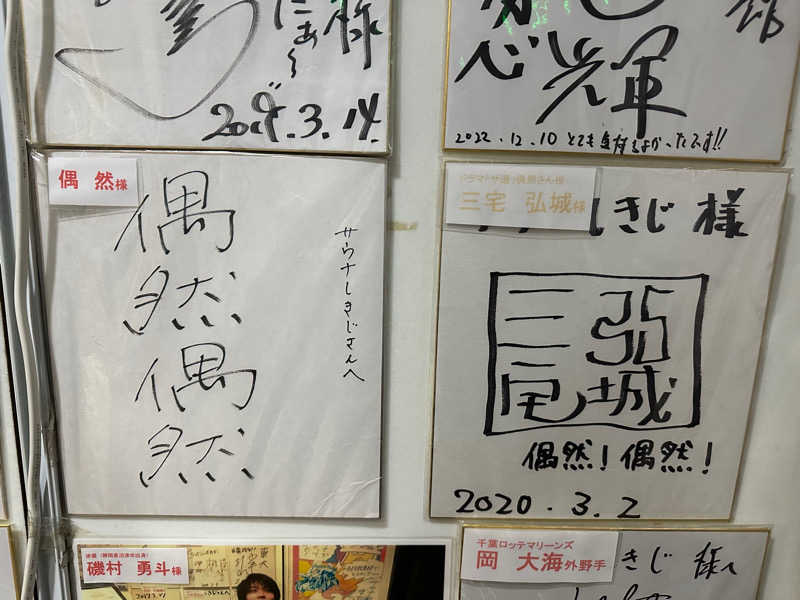 にあ〜
様
2019.3.14.
光輝
2022.12.10 とても気持ちよかったです!!
偶然様
偶然偶然
サウナしきじさんへ
三宅 弘城様
しきじ 様
三宅弘城
偶然!偶然!
2020.3.2
俳優(静岡県沼津市出身)
磯村 勇斗様
千葉ロッテマリーンズ
岡 大海外野手
きじ 様へ